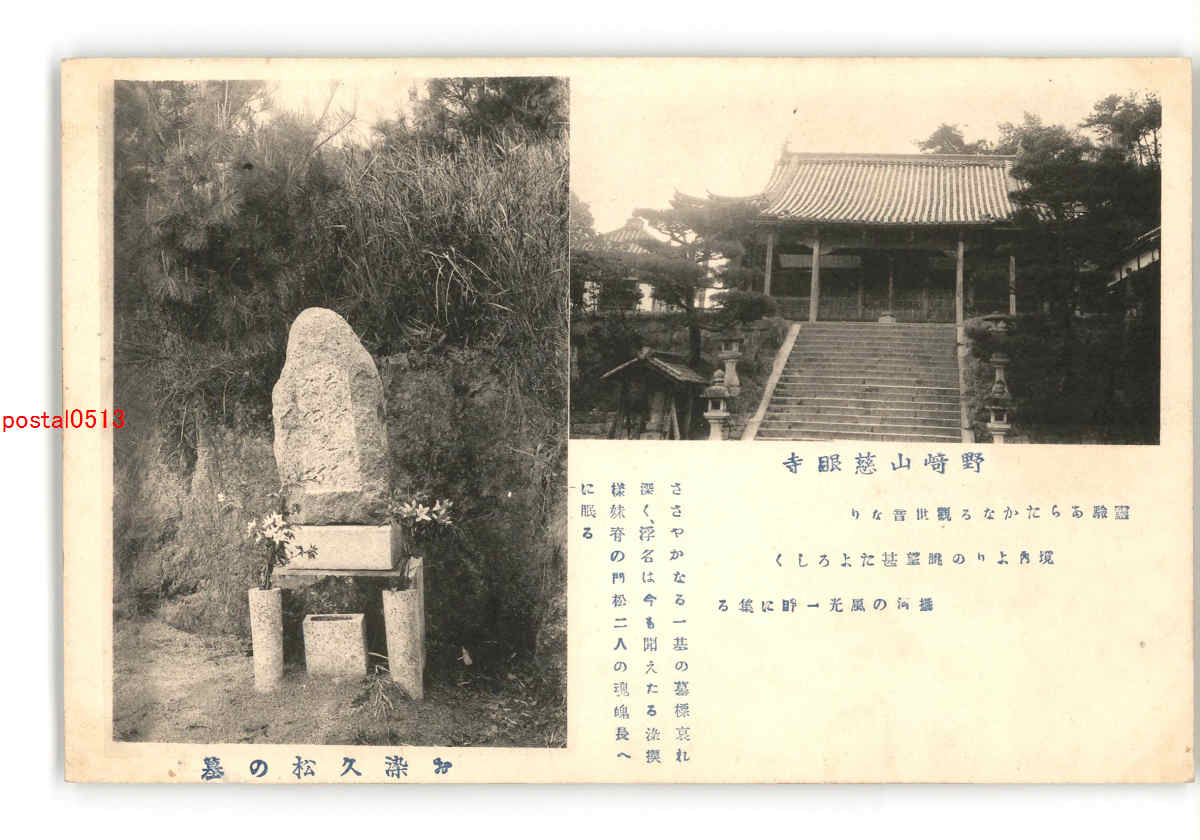 postal0513
野崎山慈眼寺
靈驗あらたかなる觀世音なり
境內よりの眺望甚たよろしく
攝河の風光一眸に集る
ささやかなる一基の墓標哀れ
深く、浮名は今も聞えたる染模
樣妹脊の門松二人の魂魄長へ
に眠る
お染久松の墓